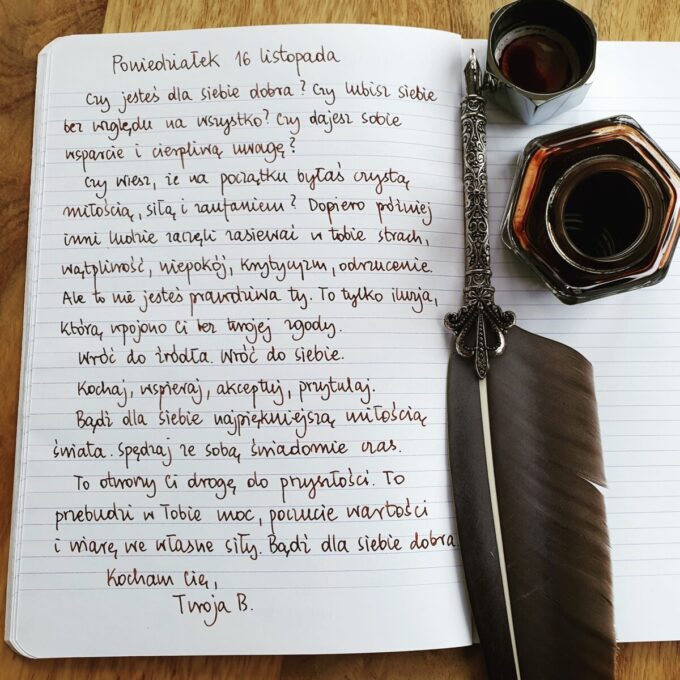 Poniedziałek 16 listopada
Czy jesteś dla siebie dobra? Czy lubisz siebie
bez względu na wszystko? Czy dajesz sobie
wsparcie i cierpliwą uwagę?
Czy wiesz, że na początku byłaś czystą
miłością, siłą i zaufaniem? Dopiero później
inni ludzie zaczęli zasiewać w tobie strach,
wątpliwość, niepokój, krytycyzm, odrzucenie.
Ale to nie jesteś prawdziwa ty. To tylko iluzja,
którą wpojono Ci bez twojej zgody.
Wróć do źródła. Wróć do siebie.
Kochaj, wspieraj, akceptuj, przytulaj.
Bądź dla siebie najpiękniejszą miłością
świata. Spędzaj ze sobą świadomie czas.
To otworzy Ci drogę do przyszłości. To
przebudzi w Tobie moc, poczucie wartości
i wiarę we własne siły. Bądź dla siebie dobra
Kocham Cię,
Twoja B.